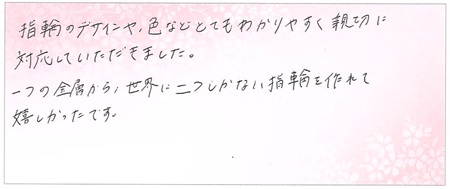 指輪のデザインや、色などとてもわかりやすく親切に
対応していただきました。
一つの金属から、世界に二つしかない指輪を作れて
嬉しかったです。